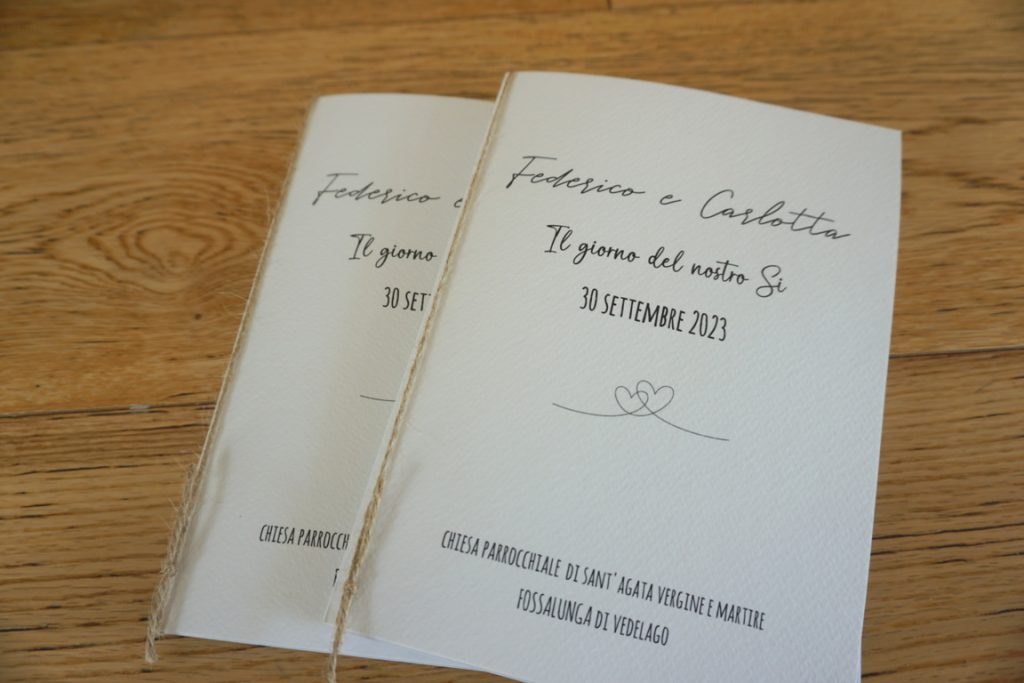 Federico e Carlotta
Il giorno del nostro Si
30 SETTEMBRE 2023
CHIESA PARROCCHIALE DI SANT'AGATA VERGINE E MARTIRE
FOSSALUNGA DI VEDELAGO
Federico e
Il giorno
30 SET
CHIESA PARROCCH
F